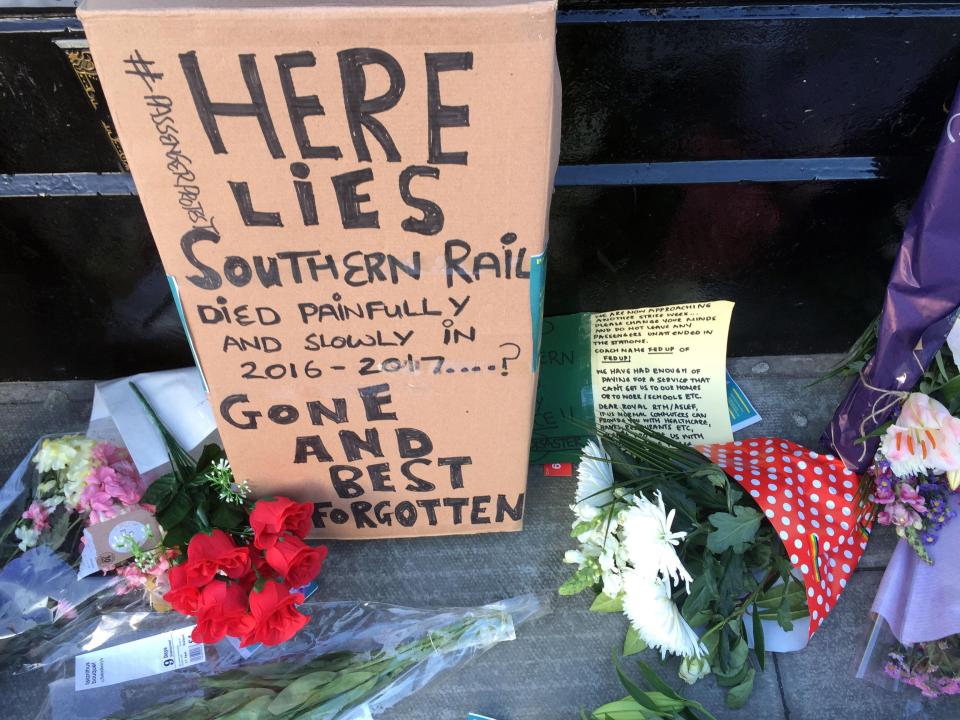 HERE
LiES
SOUTHERN RAIL
DiED PAINFULLY
AND SLOWLY iN
2016-2017....?
GONE
AND
BEST
FORGOTTEN
WE ARE NOW APPROACHING
ANOTHER STRIKE WEEK...
PLEASE CHANGE YOUR MINDS
AND DO NOT LEAVE ANY
PASSENGERS UNATTENDED IN
THE STATIONS.
COACH NAME FED UP OF
FED UP!
WE HAVE HAD ENOUGH OF
PAYING FOR A SERVICE THAT
CAN'T GET US TO OUR HOMES
OR TO WORK/SCHOOLS ETC.
DEAR ROYAL RTM/ASLEF,
IF US NORMAL COMMUTERS CAN
PROVIDE YOU WITH HEALTHCARE,
BANKS, RESTAURANTS ETC,
US WITH
ERN
!!
ASTER
9
9 Days
bouquet